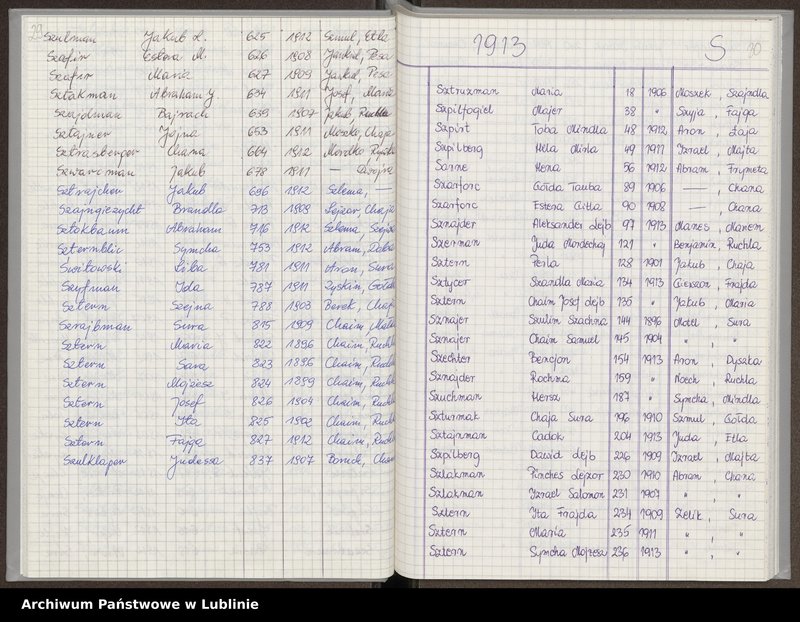 Szulman Jakub L. 625 1912 Szmul, Etla
Szafir Estera M. 626 1908 Jankiel, Pesa
Szafir Maria 627 1909 Jankiel, Pesa
Sztokman Abraham J 634 1911 Josef, Maria
Szajdman Bajrach 639 1907 Jakub, Ruchla
Sztajner Jojna 653 1911 Moszko, Chaja
Sztrasberger Chana 664 1912 Mordko,
Szwarcman Jakub 678 1911 —
Sztrajcher Jakub 696 1912 Szloma, —
Brandla 713 1909 Lejzor, Chaja
Sztokbaum Abraham 716 1912 Szloma,
Szternblic Symcha 753 1912 Abram,
Switowski Liba 781 1911 Aron, Sura
Szyfman Ida 787 1911 Zyskin, Gołda
Sztern Szejna 788 1903 Berek,
Szrajbman Sura 815 1909 Chaim,
Sztern Maria 822 1896 Chaim, Ruchl
Sztern Sara 823 1896 Chaim, Ruchl
Sztern Mojżesz 824 1899 Chaim, Ruchl
Sztern Josef 826 1904 Chaim, Ruchl
Sztern Ita 825 1902 Chaim, Ruchl
Sztern Fajga 827 1912 Chaim, Ruchl
Szulklaper Judessa 837 1907 Boruch,
1913 S 30
Sztruzman Maria 18 1906 Moszek, Szajndla
Szpilfogiel Majer 38 " Szyja, Fajga
Szpirt Toba Mindla 48 1912 Aron, Łaja
Szpilberg Hela Mirla 49 1911 Izrael, Majta
Sarne Hena 56 1912 Abram, Frymeta
Szarforc Gołda Tauba 89 1906 —, Chana
Szarforc Estera Gitla 90 1908 —, Chana
Sznajder Aleksander Lejb 97 1913 Manes, Mariem
Szerman Juda Mordechaj 121 " Benjamin, Ruchla
Sztern Perla 128 1901 Jakub, Chaja
Sztycer Szandla Maria 134 1913 Gierszon, Frajda
Sztern Chaim Josef Lejb 135 " Jakub, Maria
Sznajer Szulim Szachna 144 1896 Motel, Sura
Sznajer Chaim Samuel 145 1904 " , "
Szechter Bencjon 154 1913 Aron, Dyszka
Sznajder Rochma 159 " Noech, Ruchla
Szuchman Hersz 187 " Symcha, Mindla
Szturmak Chaja Sura 196 1910 Szmul, Gołda
Sztajnman Cadok 204 1913 Juda, Etla
Szpilberg Dawid Lejb 226 1909 Izrael, Majta
Szlakman Pinches Lejzor 230 1910 Abram, Chana
Szlakman Izrael Salomon 231 1907 " , "
Sztern Ita Frajda 234 1909 Zelik, Sura
Sztern Maria 235 1911 " , "
Sztern Symcha Mojżesz 236 1913 " , "
Archiwum Państwowe w Lublinie